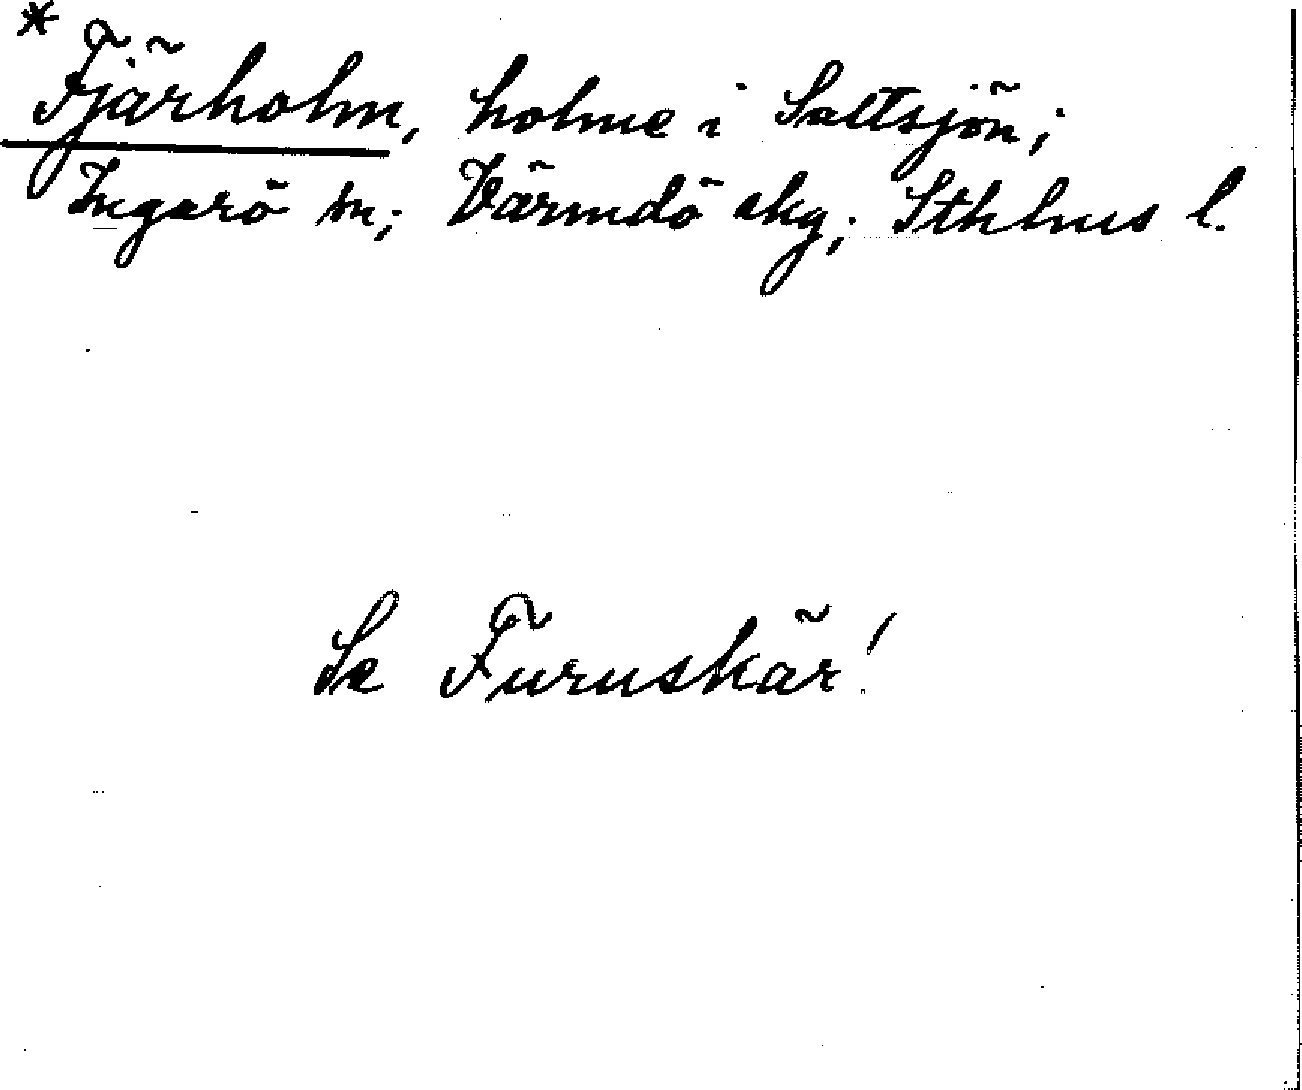 * Fjärholm, holme i Saltsjön;
Ingarö sn; Värmdö skg; Sthlms l.
Se Furuskär!